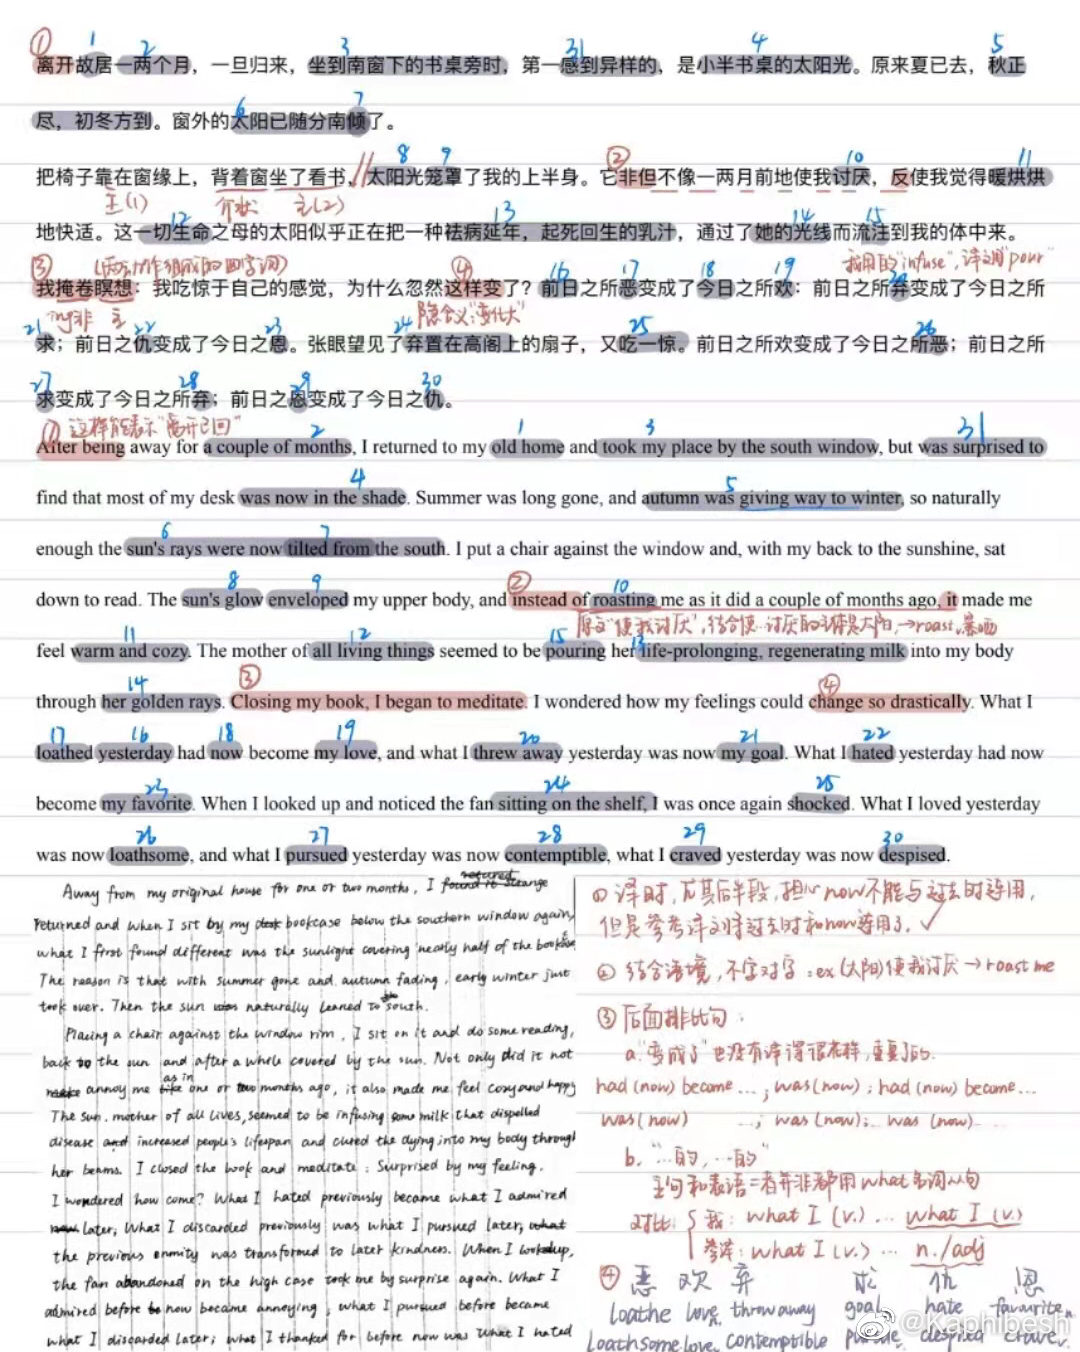 ① 1 2 3 31 4 5
离开故居一两个月，一旦归来，坐到南窗下的书桌旁时，第一感到异样的，是小半书桌的太阳光。原来夏已去，秋正
6 7
尽，初冬方到。窗外的太阳已随分南倾了。
8 9 ② 10 11
把椅子靠在窗缘上，背着窗坐了看书，太阳光笼罩了我的上半身。它非但不像一两月前地使我讨厌，反使我觉得暖烘烘
主(1) 介状 主(2)
12 13 14 15
地快适。这一切生命之母的太阳似乎正在把一种祛病延年，起死回生的乳汁，通过了她的光线而流注到我的体中来。
③ (两动作组成的四字词) ④ 16 17 18 19 我用的"infuse",译文用"pour"
我掩卷瞑想：我吃惊于自己的感觉，为什么忽然这样变了？前日之所恶变成了今日之所欢：前日之所弃变成了今日之所
ing非 主 隐含义:"变化大"
21 22 23 24 25 26
求；前日之仇变成了今日之恩。张眼望见了弃置在高阁上的扇子，又吃一惊。前日之所欢变成了今日之所恶；前日之所
27 28 29 30
求变成了今日之所弃；前日之恩变成了今日之仇。
① 这样能表示"离开已回" 2 1 3 31
After being away for a couple of months, I returned to my old home and took my place by the south window, but was surprised to
4 5
find that most of my desk was now in the shade. Summer was long gone, and autumn was giving way to winter, so naturally
6 7
enough the sun's rays were now tilted from the south. I put a chair against the window and, with my back to the sunshine, sat
8 9 ② 10
down to read. The sun's glow enveloped my upper body, and instead of roasting me as it did a couple of months ago, it made me
原文"使我讨厌",结合使…讨厌的主体是太阳,→roast,暴晒
11 12 15 13
feel warm and cozy. The mother of all living things seemed to be pouring her life-prolonging, regenerating milk into my body
14 ③ ④
through her golden rays. Closing my book, I began to meditate. I wondered how my feelings could change so drastically. What I
17 16 18 19 20 21 22
loathed yesterday had now become my love, and what I threw away yesterday was now my goal. What I hated yesterday had now
23 24 25
become my favorite. When I looked up and noticed the fan sitting on the shelf, I was once again shocked. What I loved yesterday
26 27 28 29 30
was now loathsome, and what I pursued yesterday was now contemptible, what I craved yesterday was now despised.
Away from my original house for one or two months, I found it strange
returned and when I sit by my desk bookcase below the southern window again,
what I first found different was the sunlight covering nearly half of the bookcase
The reason is that with summer gone and autumn fading, early winter just
took over. Then the sun was naturally leaned to south.
Placing a chair against the window rim, I sit on it and do some reading,
back to the sun and after a while covered by the sun. Not only did it not
make annoy me like as in one or two months ago, it also made me feel cozy and happy
The sun, mother of all lives, seemed to be infusing some milk that dispelled
disease and increased people's lifespan and cured the dying into my body through
her beams. I closed the book and meditate: Surprised by my feeling.
I wondered how come? What I hated previously became what I admired
now later, What I discarded previously was what I pursued later, what
the previous enmity was transformed to later kindness. When I look up,
the fan abandoned on the high case took me by surprise again. What I
admired before be now became annoying, what I pursued before became
what I discarded later; what I thanked for before now was what I hated
① 译时,尤其后半段,担心now不能与过去时连用,
但是参考译文将过去时和now连用了.✓
② 结合语境,不字对字：ex(太阳)使我讨厌→roast me
③ 后面排比句：
a."变成了"也没有译得很花样,重复了的.
had (now) become ... ; was (now) ; had (now) become ...
was (now) ...; was (now);... was (now)...
b. "...的,...的"
主句和表语=者并非都用what名词从句
对比: 我: what I (v.) ... what I (v.)
参译: what I (v.) ... n./adj
④ 恶 欢 弃 求 仇 恩
loathe love throw away goal hate favourite
loathsome love contemptible pursue despised crave
@Kaphibesh